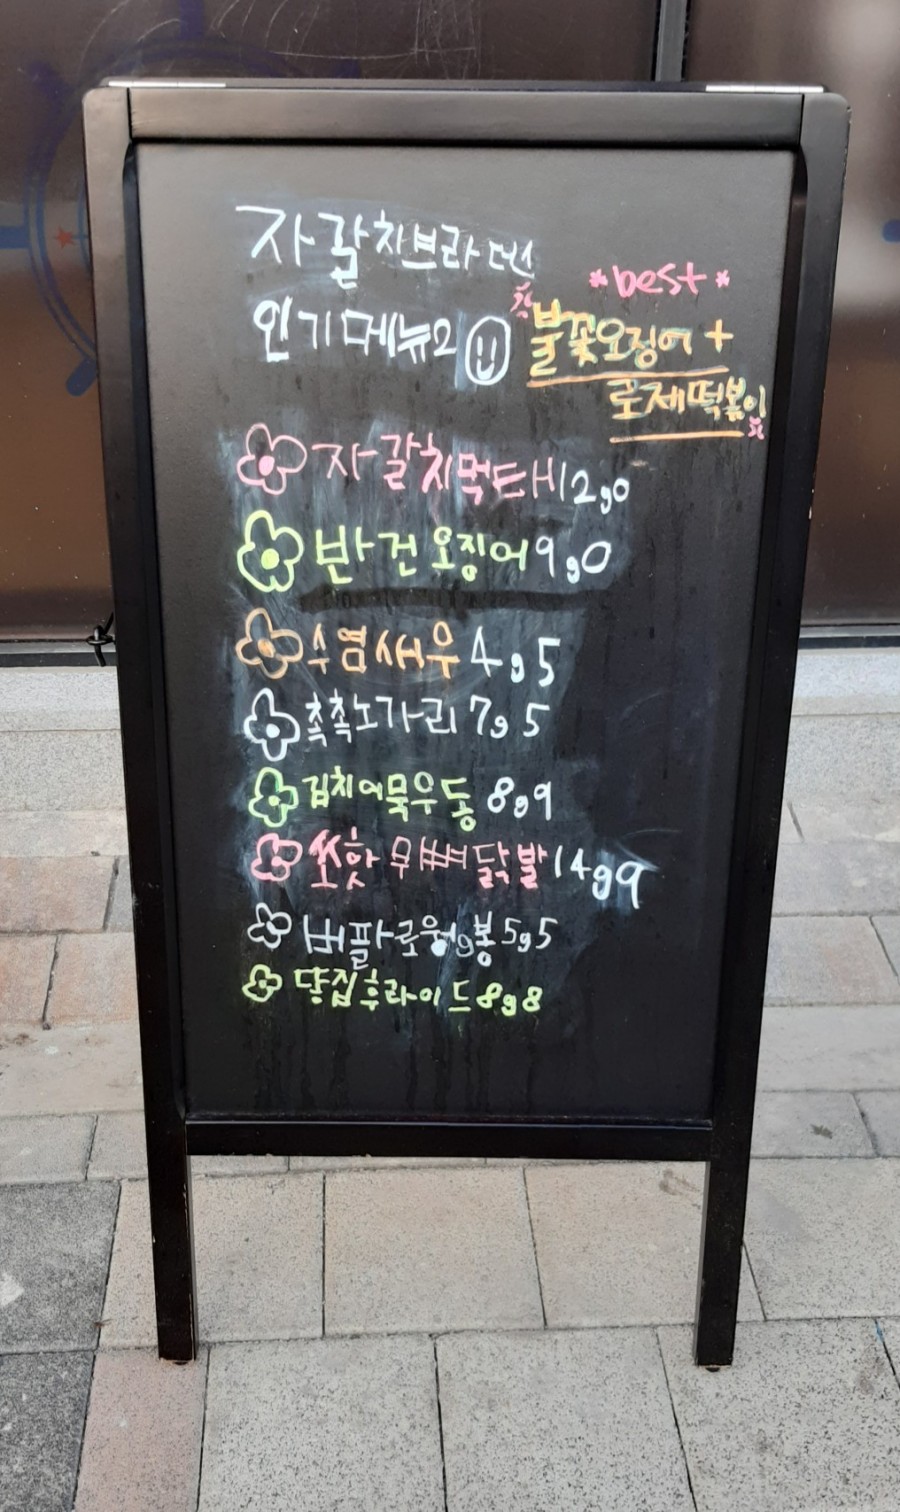 자갈치브라더스
인기메뉴2
*best*
불꽃오징어+
로제떡볶이
자갈치먹태 12,0
반건오징어 9,0
수염새우 4,5
촉촉노가리 7,5
김치어묵우동 8,9
쏘핫무뼈닭발 14,9
버팔로윙,봉 5,5
닭집후라이드 8,8